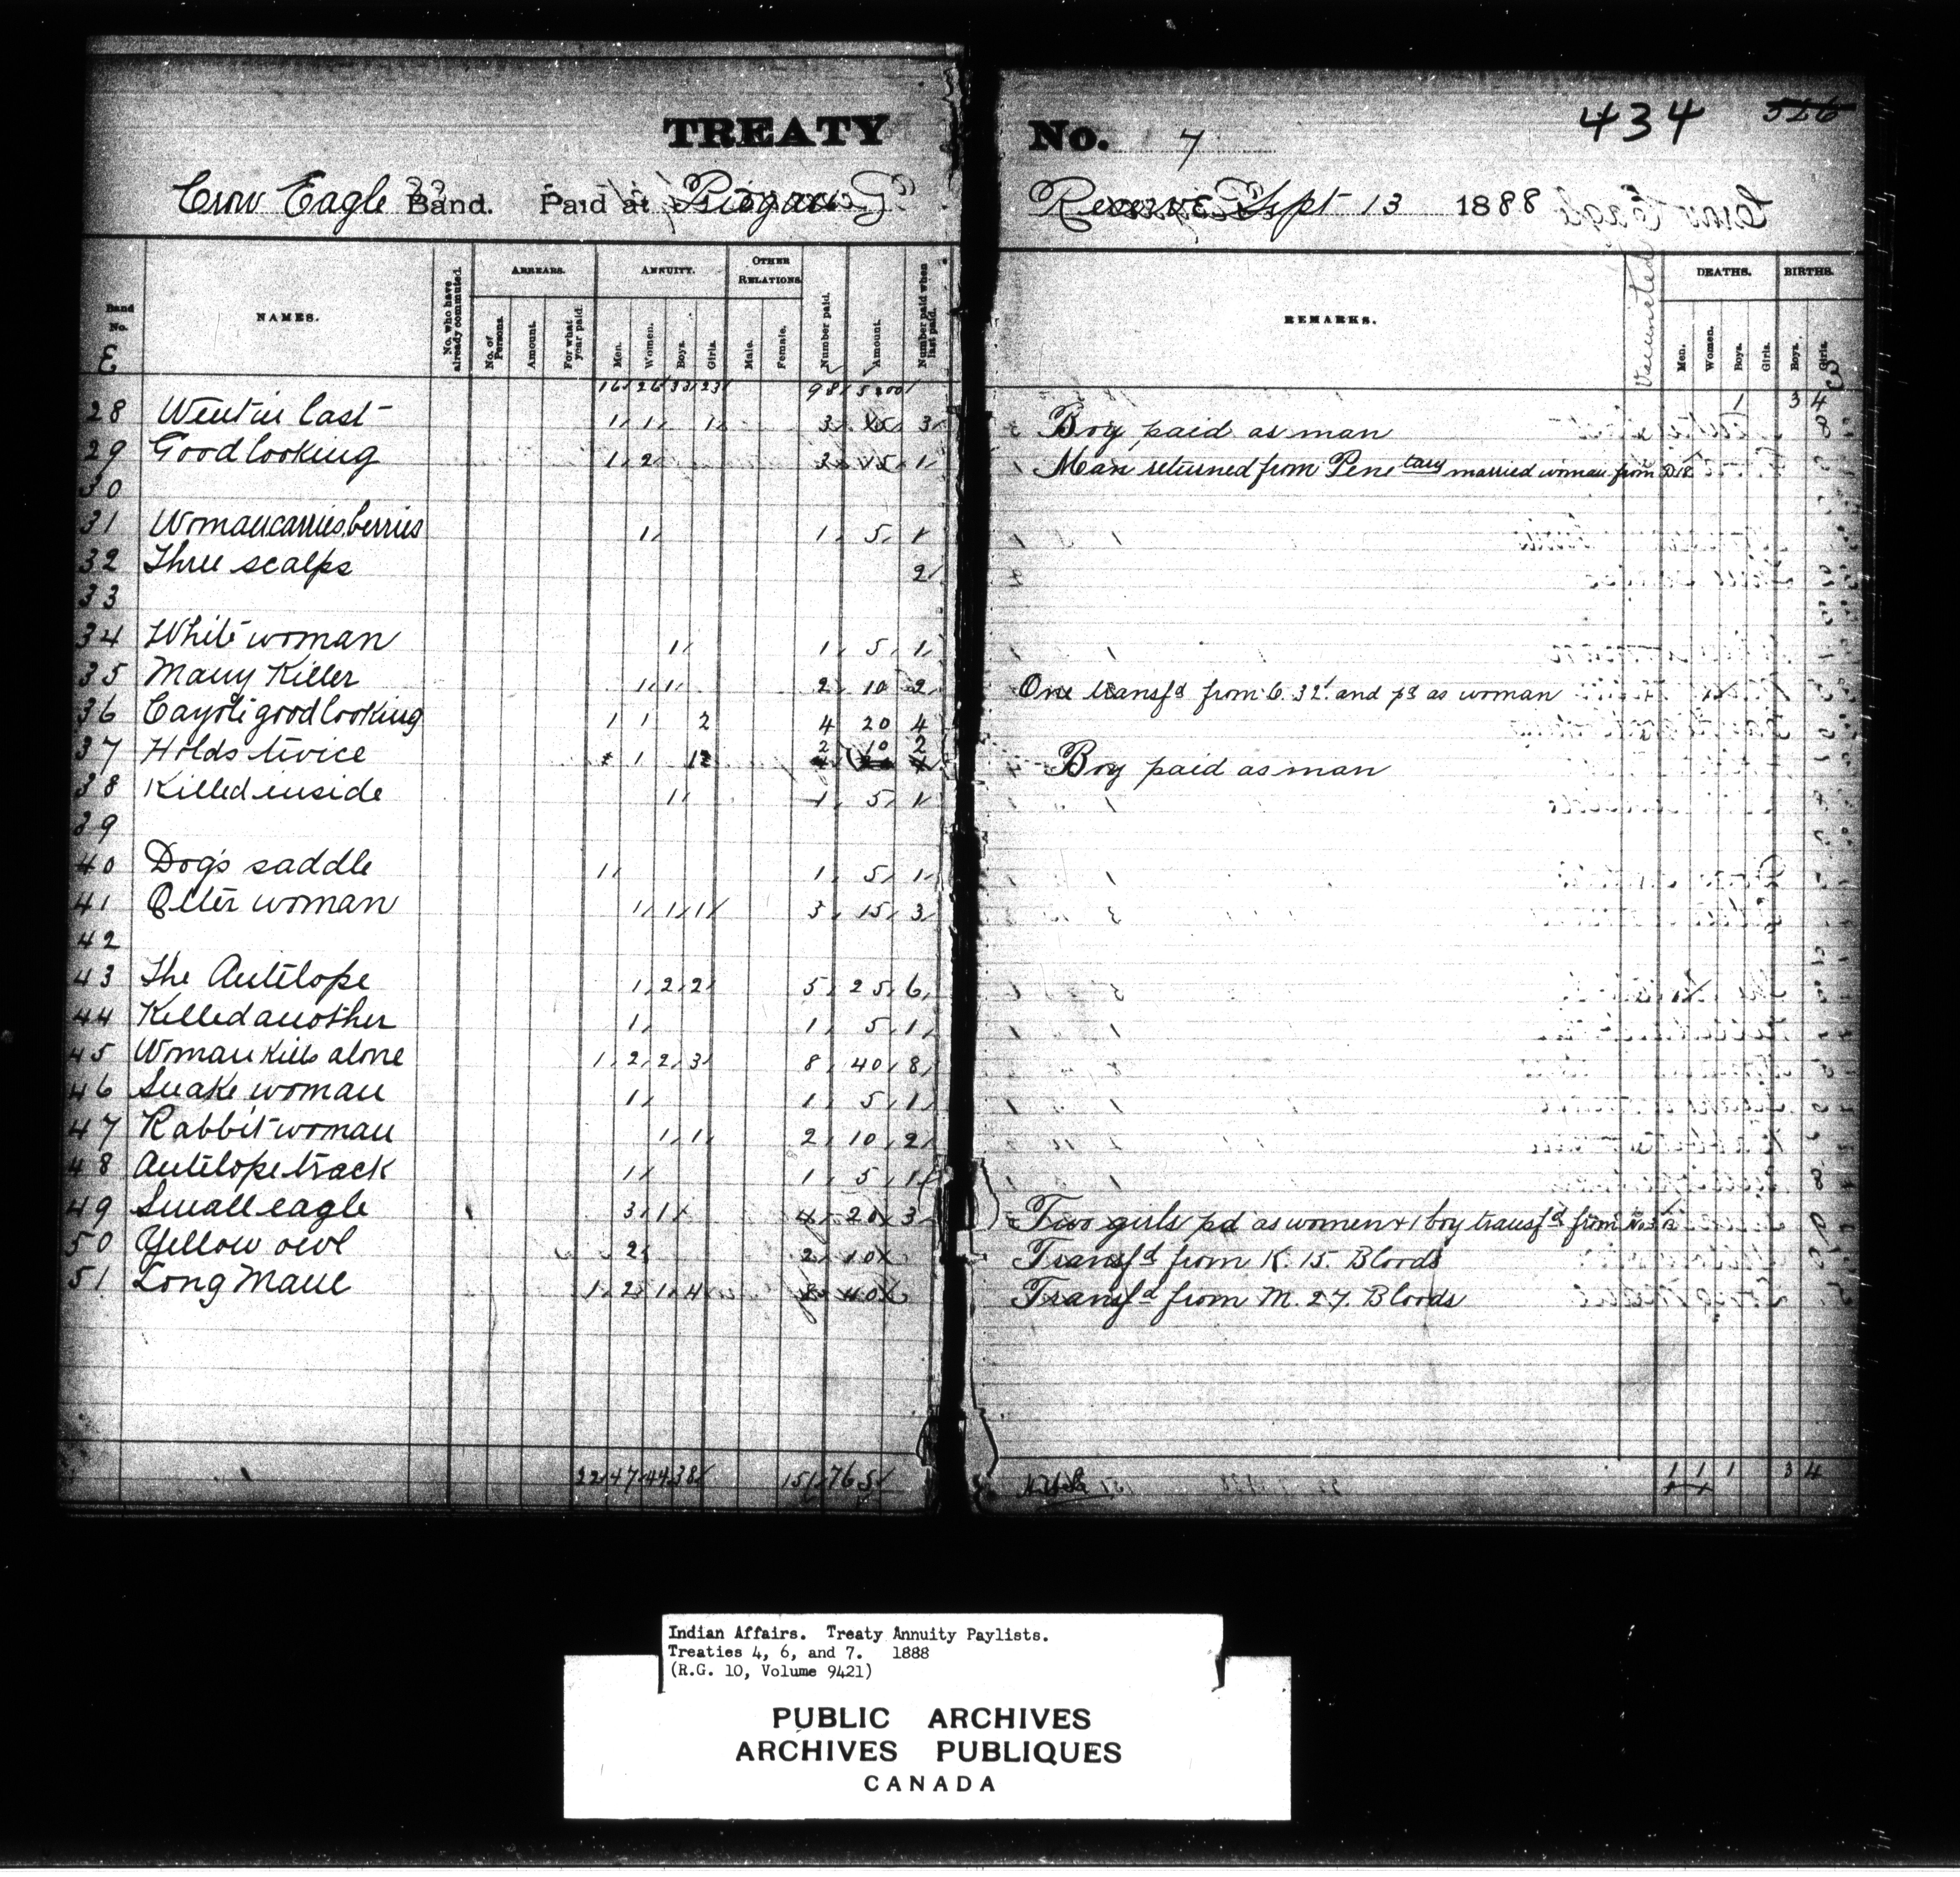 TREATY No. 7 434 526
Crow Eagle Band. Paid at Piegan Reserve Sept 13 1888
Band No. NAMES. No. who have already commuted. ARREARS. ANNUITY. OTHER RELATIONS. Number paid. Amount. Number paid when last paid. REMARKS. Vaccinated DEATHS. BIRTHS.
E No. of Persons. Amount. For what year paid. Men. Women. Boys. Girls. Male. Female. Men. Women. Boys. Girls. Boys. Girls.
16 26 33 23 98 1 3 4
28 Went in last 1 1 1 3 15 3 Boy paid as man
29 Good looking 1 2 3 15 1 Man returned from Penetary married woman from
30
31 Woman carries berries 1 1 5 1
32 Three scalps 2
33
34 White woman 1 1 5 1
35 Many Killer 1 1 2 10 2 One transfd from C. 32. and pd as woman
36 Cayote good looking 1 1 2 4 20 4
37 Holds twice 1 2 10 2 Boy paid as man
38 Killed inside 1 1 5 1
39
40 Dog's saddle 1 1 5 1
41 Otter woman 1 1 1 3 15 3
42
43 The Antelope 1 2 2 5 25 6
44 Killed another 1 1 5 1
45 Woman Kills alone 1 2 2 3 8 40 8
46 Snake woman 1 1 5 1
47 Rabbit woman 1 1 2 10 2
48 Antelope track 1 1 5 1
49 Small eagle 3 1 4 20 3 Two girls pd as women + 1 boy transfd from
50 Yellow owl 2 2 10 Transfd from K. 15. Bloods
51 Long Mane 1 2 1 4 8 40 Transfd from M. 27. Bloods
22 47 44 38 151 765 1 1 1 3 4
Indian Affairs. Treaty Annuity Paylists.
Treaties 4, 6, and 7. 1888
(R.G. 10, Volume 9421)
PUBLIC ARCHIVES
ARCHIVES PUBLIQUES
CANADA